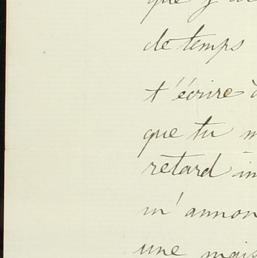 que
de temps
t'écrire
que tu
retard
m'annon
une mais